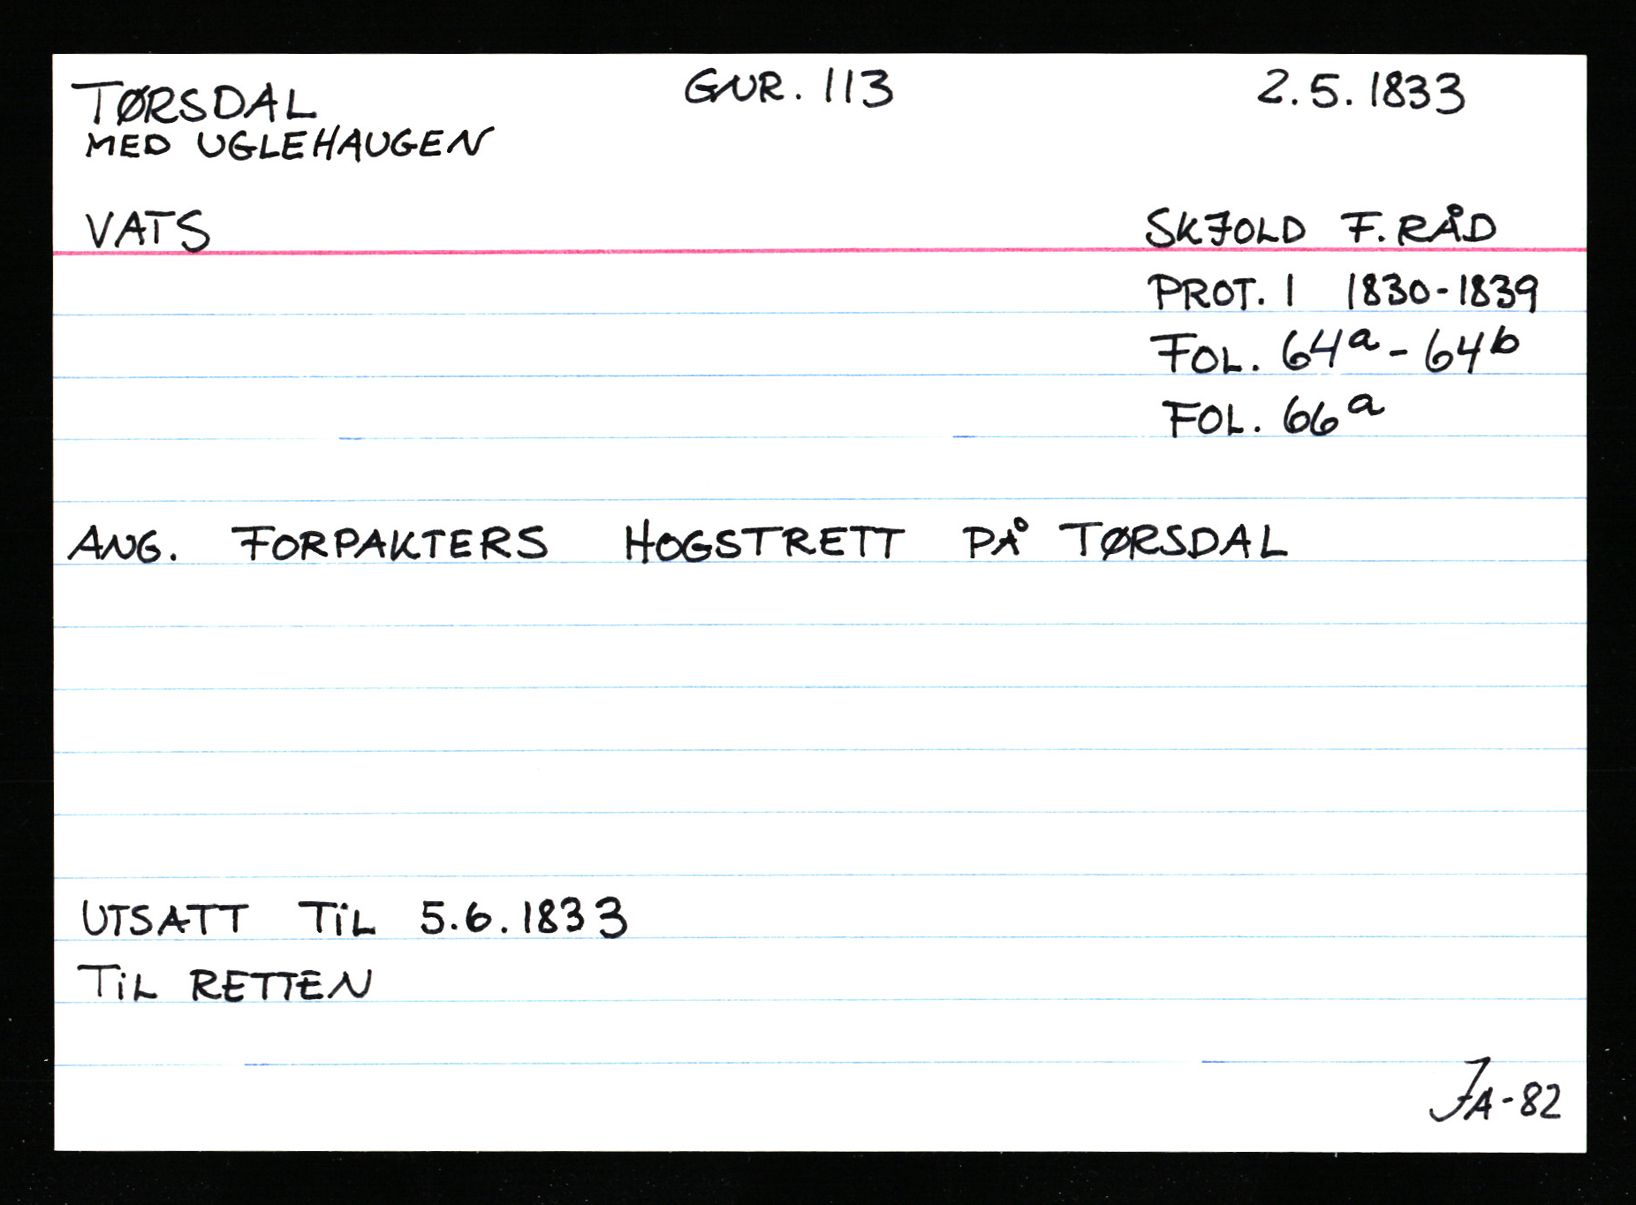 TØRSDAL GNR. 113 2.5.1833
MED UGLEHAUGEN
VATS SKJOLD F.RÅD
PROT. 1 1830-1839
FOL. 64a - 64b
FOL. 66a
ANG. FORPAKTERS HOGSTRETT PÅ TØRSDAL
UTSATT TIL 5.6.1833
TIL RETTEN
JA-82